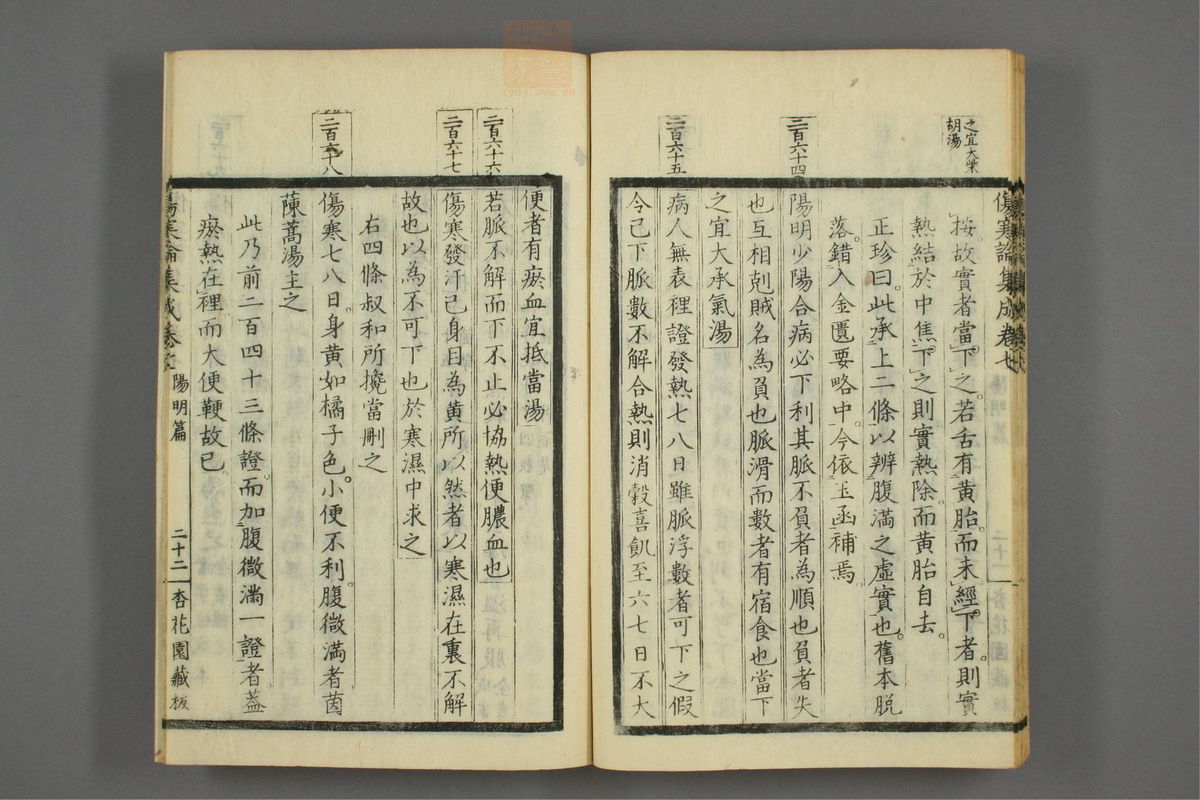 之宜大柴
胡湯
傷寒論集成卷七
按故實者當下之若舌有黃胎而未經下者則實
熱結於中焦下之則實熱除而黃胎自去
正珍曰此承上二條以辨腹滿之虛實也舊本脫
落錯入金匱要略中今依玉函補焉
二百六十四
陽明少陽合病必下利其脈不負者為順也負者失
也互相剋賊名為負也脈滑而數者有宿食也當下
之宜大承氣湯
二百六十五
病人無表裡證發熱七八日雖脈浮數者可下之假
令已下脈數不解合熱則消穀喜飢至六七日不大
便者有瘀血宜抵當湯
二百六十六
若脈不解而下不止必協熱便膿血也
二百六十七
傷寒發汗已身目為黃所以然者以寒濕在裏不解
故也以為不可下也於寒濕中求之
右四條叔和所攙當刪之
二百六十八
傷寒七八日身黃如橘子色小便不利腹微滿者茵
蔯蒿湯主之
此乃前二百四十三條證而加腹微滿一證者蓋
瘀熱在裡而大便鞕故已
傷寒論集成卷七
陽明篇
二十二
杏花園藏板